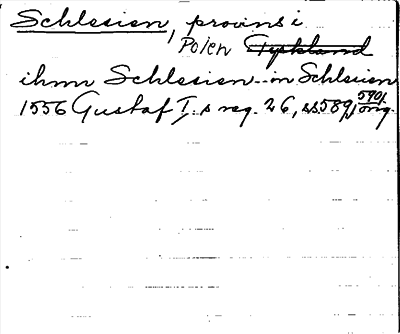 Schlesien, provins i
Polen Tyskland
ihm Schlesien in Schlesien
1556 Gustaf I:s reg. 26, ss 589, 590, orig.